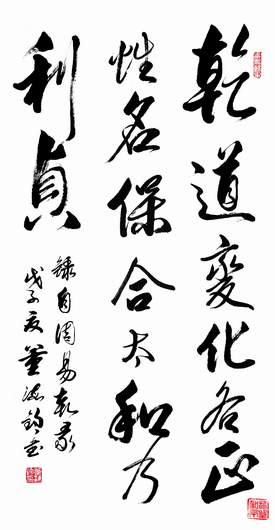 乾道變化各正
性名保合太和乃
利貞
錄自周易乾彖
戊子夏董海書